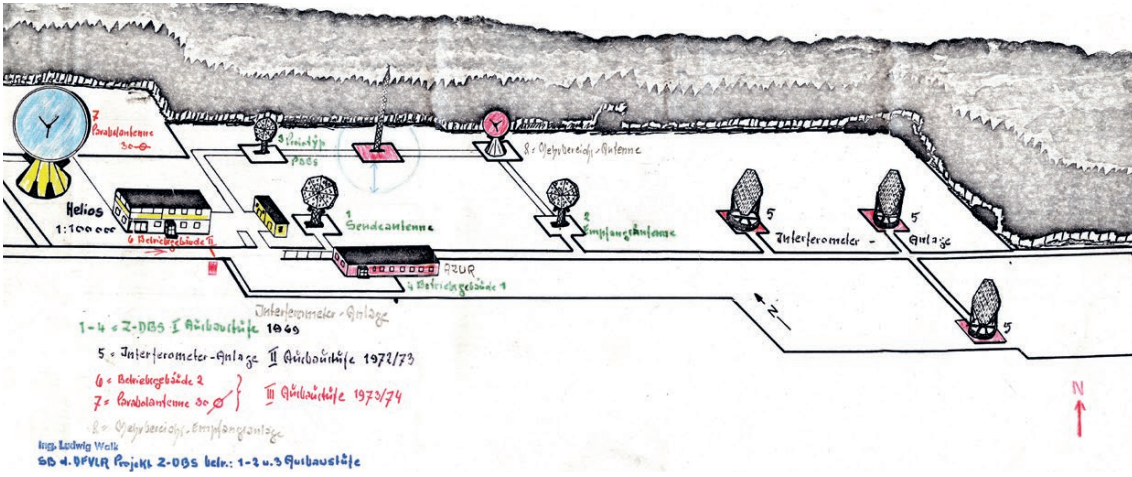 7
Parabolantenne
30 ⌀
3 Prototyp
PDBS
8 = Mehrbereich-Antenne
Helios
1:100 000
6 Betriebsgebäude II
1
Sendeantenne
2
Empfangsantenne
5
5
Interferometer - Anlage
AZUR
4 Betriebsgebäude 1
5
N
Interferometer-Anlage
1-4 = Z-DBS I Ausbaustufe 1969
5 = Interferometer-Anlage II Ausbaustufe 1972/73
6 = Betriebsgebäude 2
7 = Parabolantenne 30 ⌀
III Ausbaustufe 1973/74
8 = Mehrbereichs-Empfangsanlage
N
Ing. Ludwig Walk
SB d. DFVLR Projekt Z-DBS betr.: 1-2 u. 3 Ausbaustufe